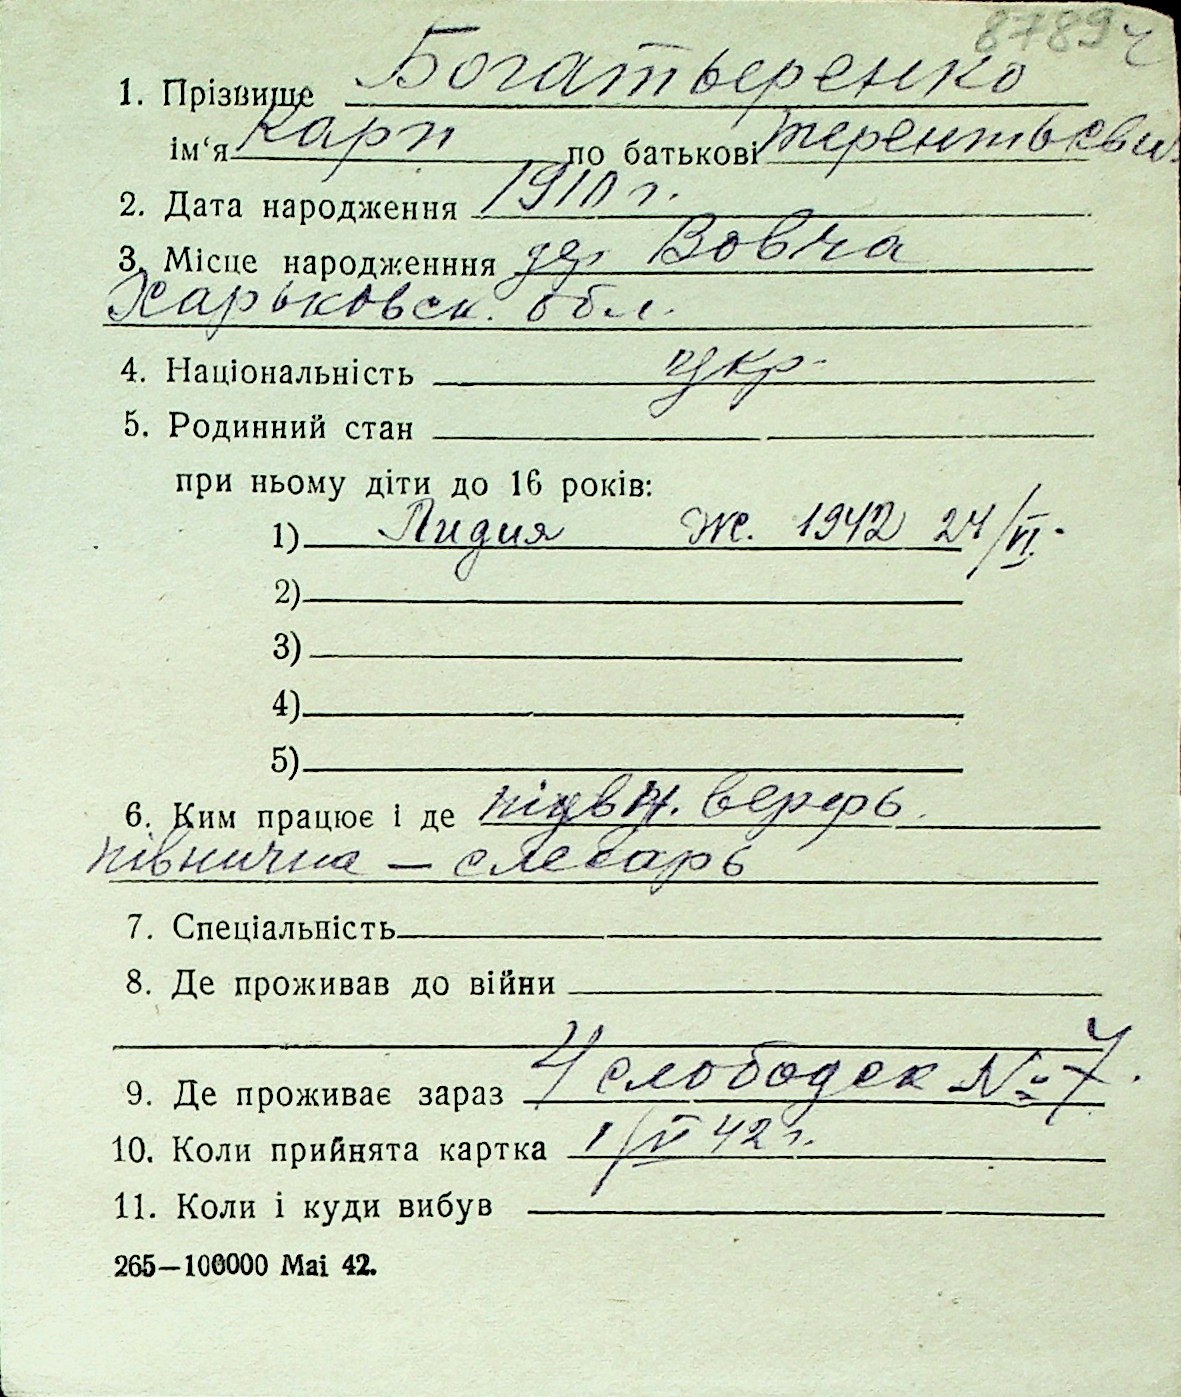 8789
1. Прізвище Богатыренко
ім‘я Карп по батькові Терентьевич
2. Дата народження 1910 г.
3. Місце народженння дер. Вовча
Харьковск. обл.
4. Національність укр.
5. Родинний стан
при ньому діти до 16 років:
1) Лидия Ж. 1942 24/VI.
2)
3)
4)
5)
6. Ким працює і де верфь.
північна — слесарь
7. Спеціальність
8. Де проживав до війни
9. Де проживає зараз слободск №
10. Коли прийнята картка 1/VI 42 г.
11. Коли і куди вибув
265—100000 Маі 42.